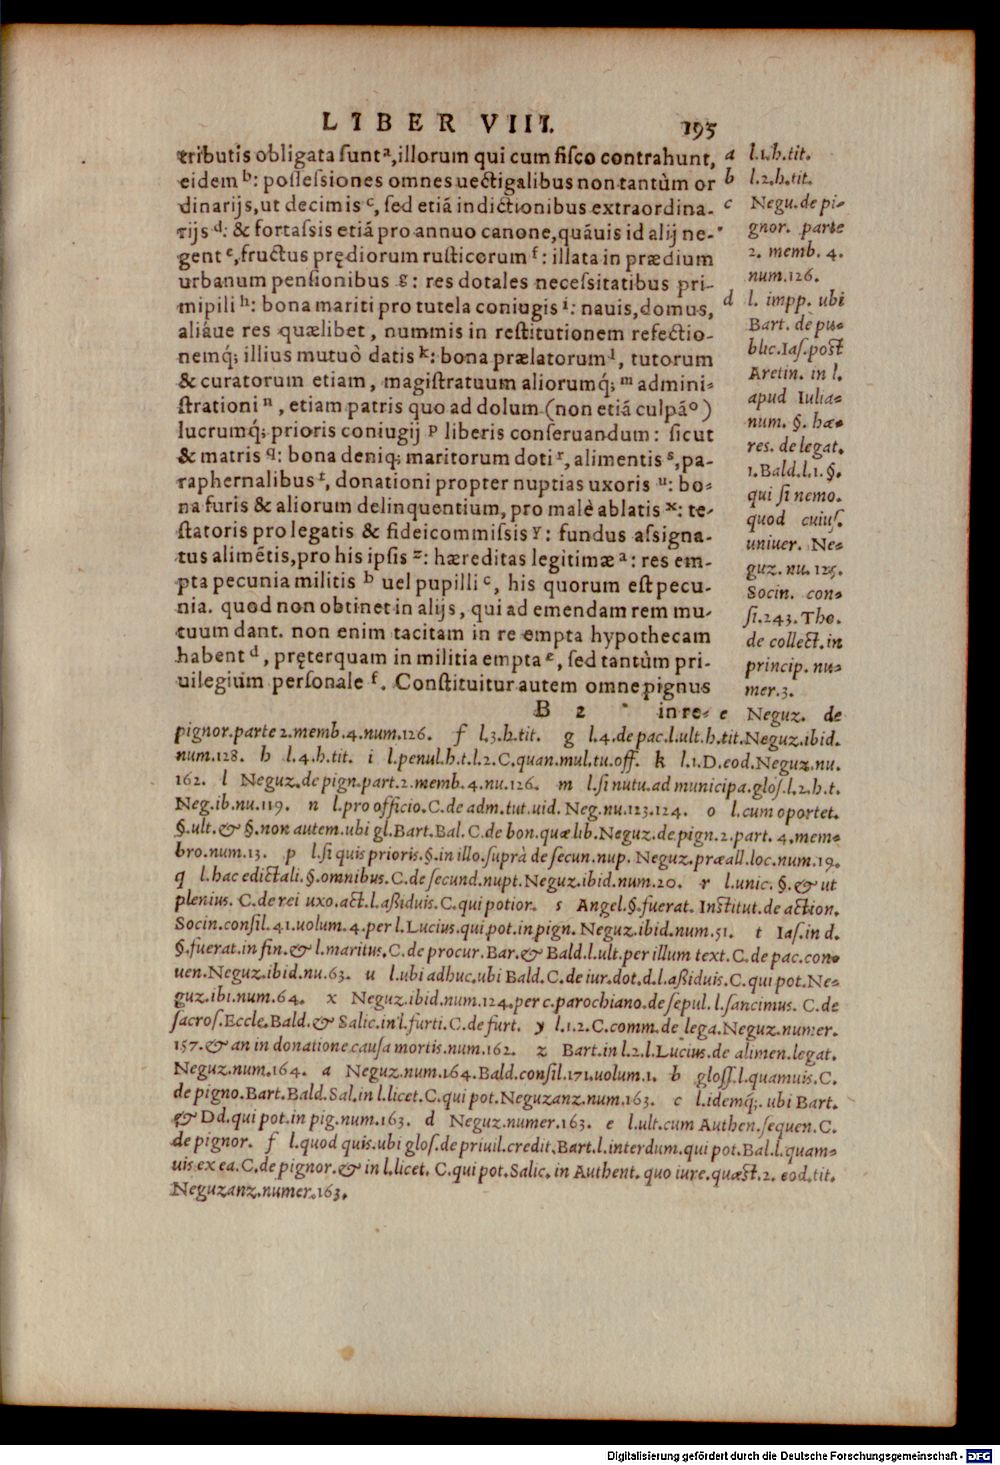 LIBER VIII. 195
tributis obligata sunt ᵃ, illorum qui cum fisco contrahunt,
eidem ᵇ: possessiones omnes uectigalibus non tantùm or
dinarijs, ut decimis ᶜ, sed etiã indictionibus extraordina-
rijs ᵈ: & fortassis etiã pro annuo canone, quãuis id alij ne-
gent ᵉ, fructus prędiorum rusticorum ᶠ: illata in prædium
urbanum pensionibus ᵍ: res dotales necessitatibus pri-
mipili ʰ: bona mariti pro tutela coniugis ⁱ: nauis, domus,
aliáue res quælibet, nummis in restitutionem refectio-
nemq́; illius mutuò datis ᵏ: bona prælatorum ˡ, tutorum
& curatorum etiam, magistratuum aliorumq́; ᵐ admini-
strationi ⁿ, etiam patris quo ad dolum (non etiã culpã ᵒ)
lucrumq́; prioris coniugij ᵖ liberis conseruandum: sicut
& matris q: bona deniq; maritorum doti ʳ, alimentis ˢ, pa-
raphernalibus ᵗ, donationi propter nuptias uxoris ᵘ: bo-
na furis & aliorum delinquentium, pro malè ablatis ˣ: te-
statoris pro legatis & fideicommissis ʸ: fundus assigna-
tus alimẽtis, pro his ipsis ᶻ: hæreditas legitimæ ᵃ: res em-
pta pecunia militis ᵇ uel pupilli ᶜ, his quorum est pecu-
nia. quod non obtinet in alijs, qui ad emendam rem mu-
tuum dant. non enim tacitam in re empta hypothecam
habent ᵈ, pręterquam in militia empta ᵉ, sed tantùm pri-
uilegium personale ᶠ. Constituitur autem omne pignus
B 2 in re-
a l.1.h.tit.
b l.2.h.tit.
c Negu. de pi-
gnor. parte
2. memb. 4.
num.126.
d l. impp. ubi
Bart. de pu-
blic. Ias. post
Aretin. in l.
apud Iulia-
num. §. hæ-
res. de legat.
1. Bald. l.1. §.
qui si nemo.
quod cuius.
uniuer. Ne-
guz. nu. 125.
Socin. con-
si.243. Tho.
de collect. in
princip. nu-
mer.3.
e Neguz. de
pignor. parte 2. memb. 4. num.126. f l.3.h.tit. g l.4.de pac.l.ult.h.tit. Neguz. ibid.
num.128. h l.4.h.tit. i l.penul.h.t.l.2.C.quan.mul.tu.off. k l.1.D.eod.Neguz.nu.
162. l Neguz.de pign.part.2.memb.4.nu.126. m l.si nutu.ad municipa.glos.l.2.h.t.
Neg.ib.nu.119. n l.pro officio.C.de adm.tut.uid. Neg.nu.123.124. o l.cum oportet.
§.ult.& §.non autem.ubi gl.Bart.Bal.C.de bon.quæ lib.Neguz.de pign.2.part. 4.mem-
bro.num.13. p l.si quis prioris.§.in illo.suprà de secun.nup. Neguz.præall.loc.num.19.
q l.hac edictali.§.omnibus.C.de secund.nupt.Neguz.ibid.num.20. r l.unic.§.& ut
plenius. C.de rei uxo.act.l.aßiduis.C.qui potior. s Angel.§.fuerat. Institut.de action.
Socin.consil.41.uolum.4.per l.Lucius.qui pot.in pign. Neguz.ibid.num.51. t Ias.in d.
§.fuerat.in fin.& l.maritus.C.de procur.Bar.& Bald.l.ult.per illum text.C.de pac.con-
uen.Neguz.ibid.nu.63. u l.ubi adhuc.ubi Bald.C.de iur.dot.d.l.aßiduis.C.qui pot.Ne-
guz.ibi.num.64. x Neguz.ibid.num.124.per c.parochiano.de sepul.l.sancimus. C.de
sacros.Eccle.Bald.& Salic.in l.furti.C.de furt. y l.1.2.C.comm.de lega.Neguz.numer.
157.& an in donatione causa mortis.num.162. z Bart.in l.2.l.Lucius.de alimen.legat.
Neguz.num.164. a Neguz.num.164.Bald.consil.171.uolum.1. b gloss.l.quamuis.C.
de pigno.Bart.Bald.Sal.in l.licet.C.qui pot.Neguzanz.num.163. c l.idemq́;. ubi Bart.
& Dd.qui pot.in pig.num.163. d Neguz.numer.163. e l.ult.cum Authen.sequen.C.
de pignor. f l.quod quis.ubi glos.de priuil.credit.Bart.l.interdum.qui pot.Bal.l.quam-
uis.ex ea.C.de pignor.& in l.licet. C.qui pot.Salic.in Authent. quo iure.quæst.2. eod.tit.
Neguzanz.numer.163.
Digitalisierung gefördert durch die Deutsche Forschungsgemeinschaft - DFG